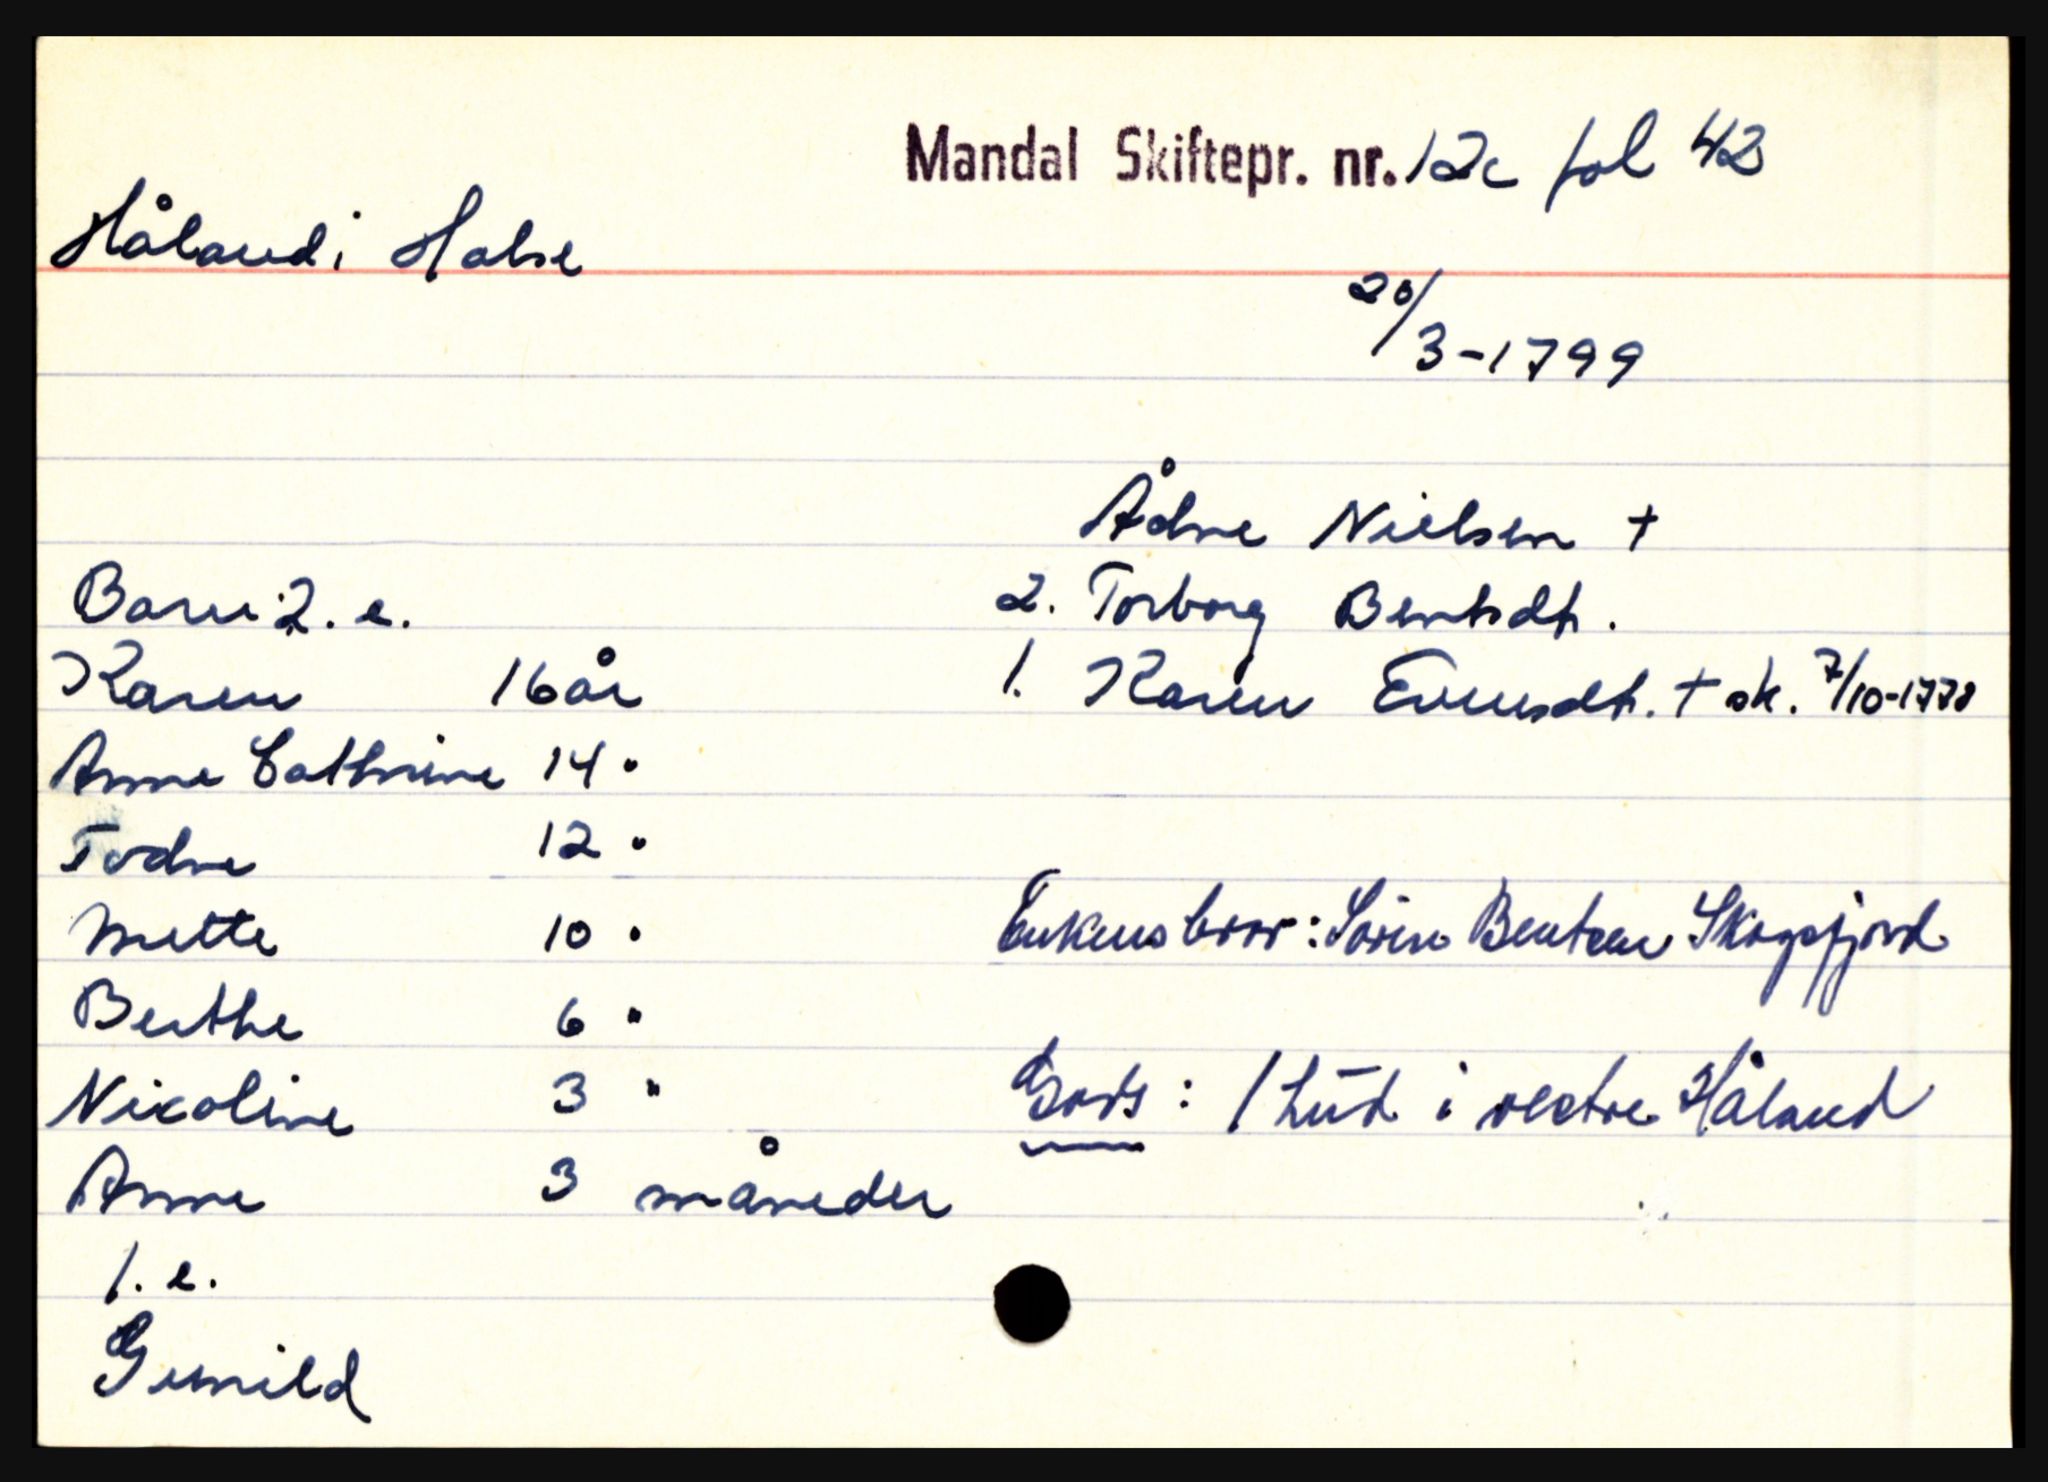 Mandal Skiftepr. nr. 12c fol 42
Håland i Halse
20/3-1799
Ådne Nielsen +
Barn i 2. e.
2. Torborg Bentsdt.
Karen 16 år
1. Karen Evensdt. + sk. 7/10-1778
Anne Cathrine 14 "
Todne 12 "
Mette 10 "
Enkens bror: Sören Bentsen Skogsfjord
Berthe 6 "
Nicoline 3 "
Gods: 1 hud i vestre Håland
Anne 3 måneder
1. e.
Gunild